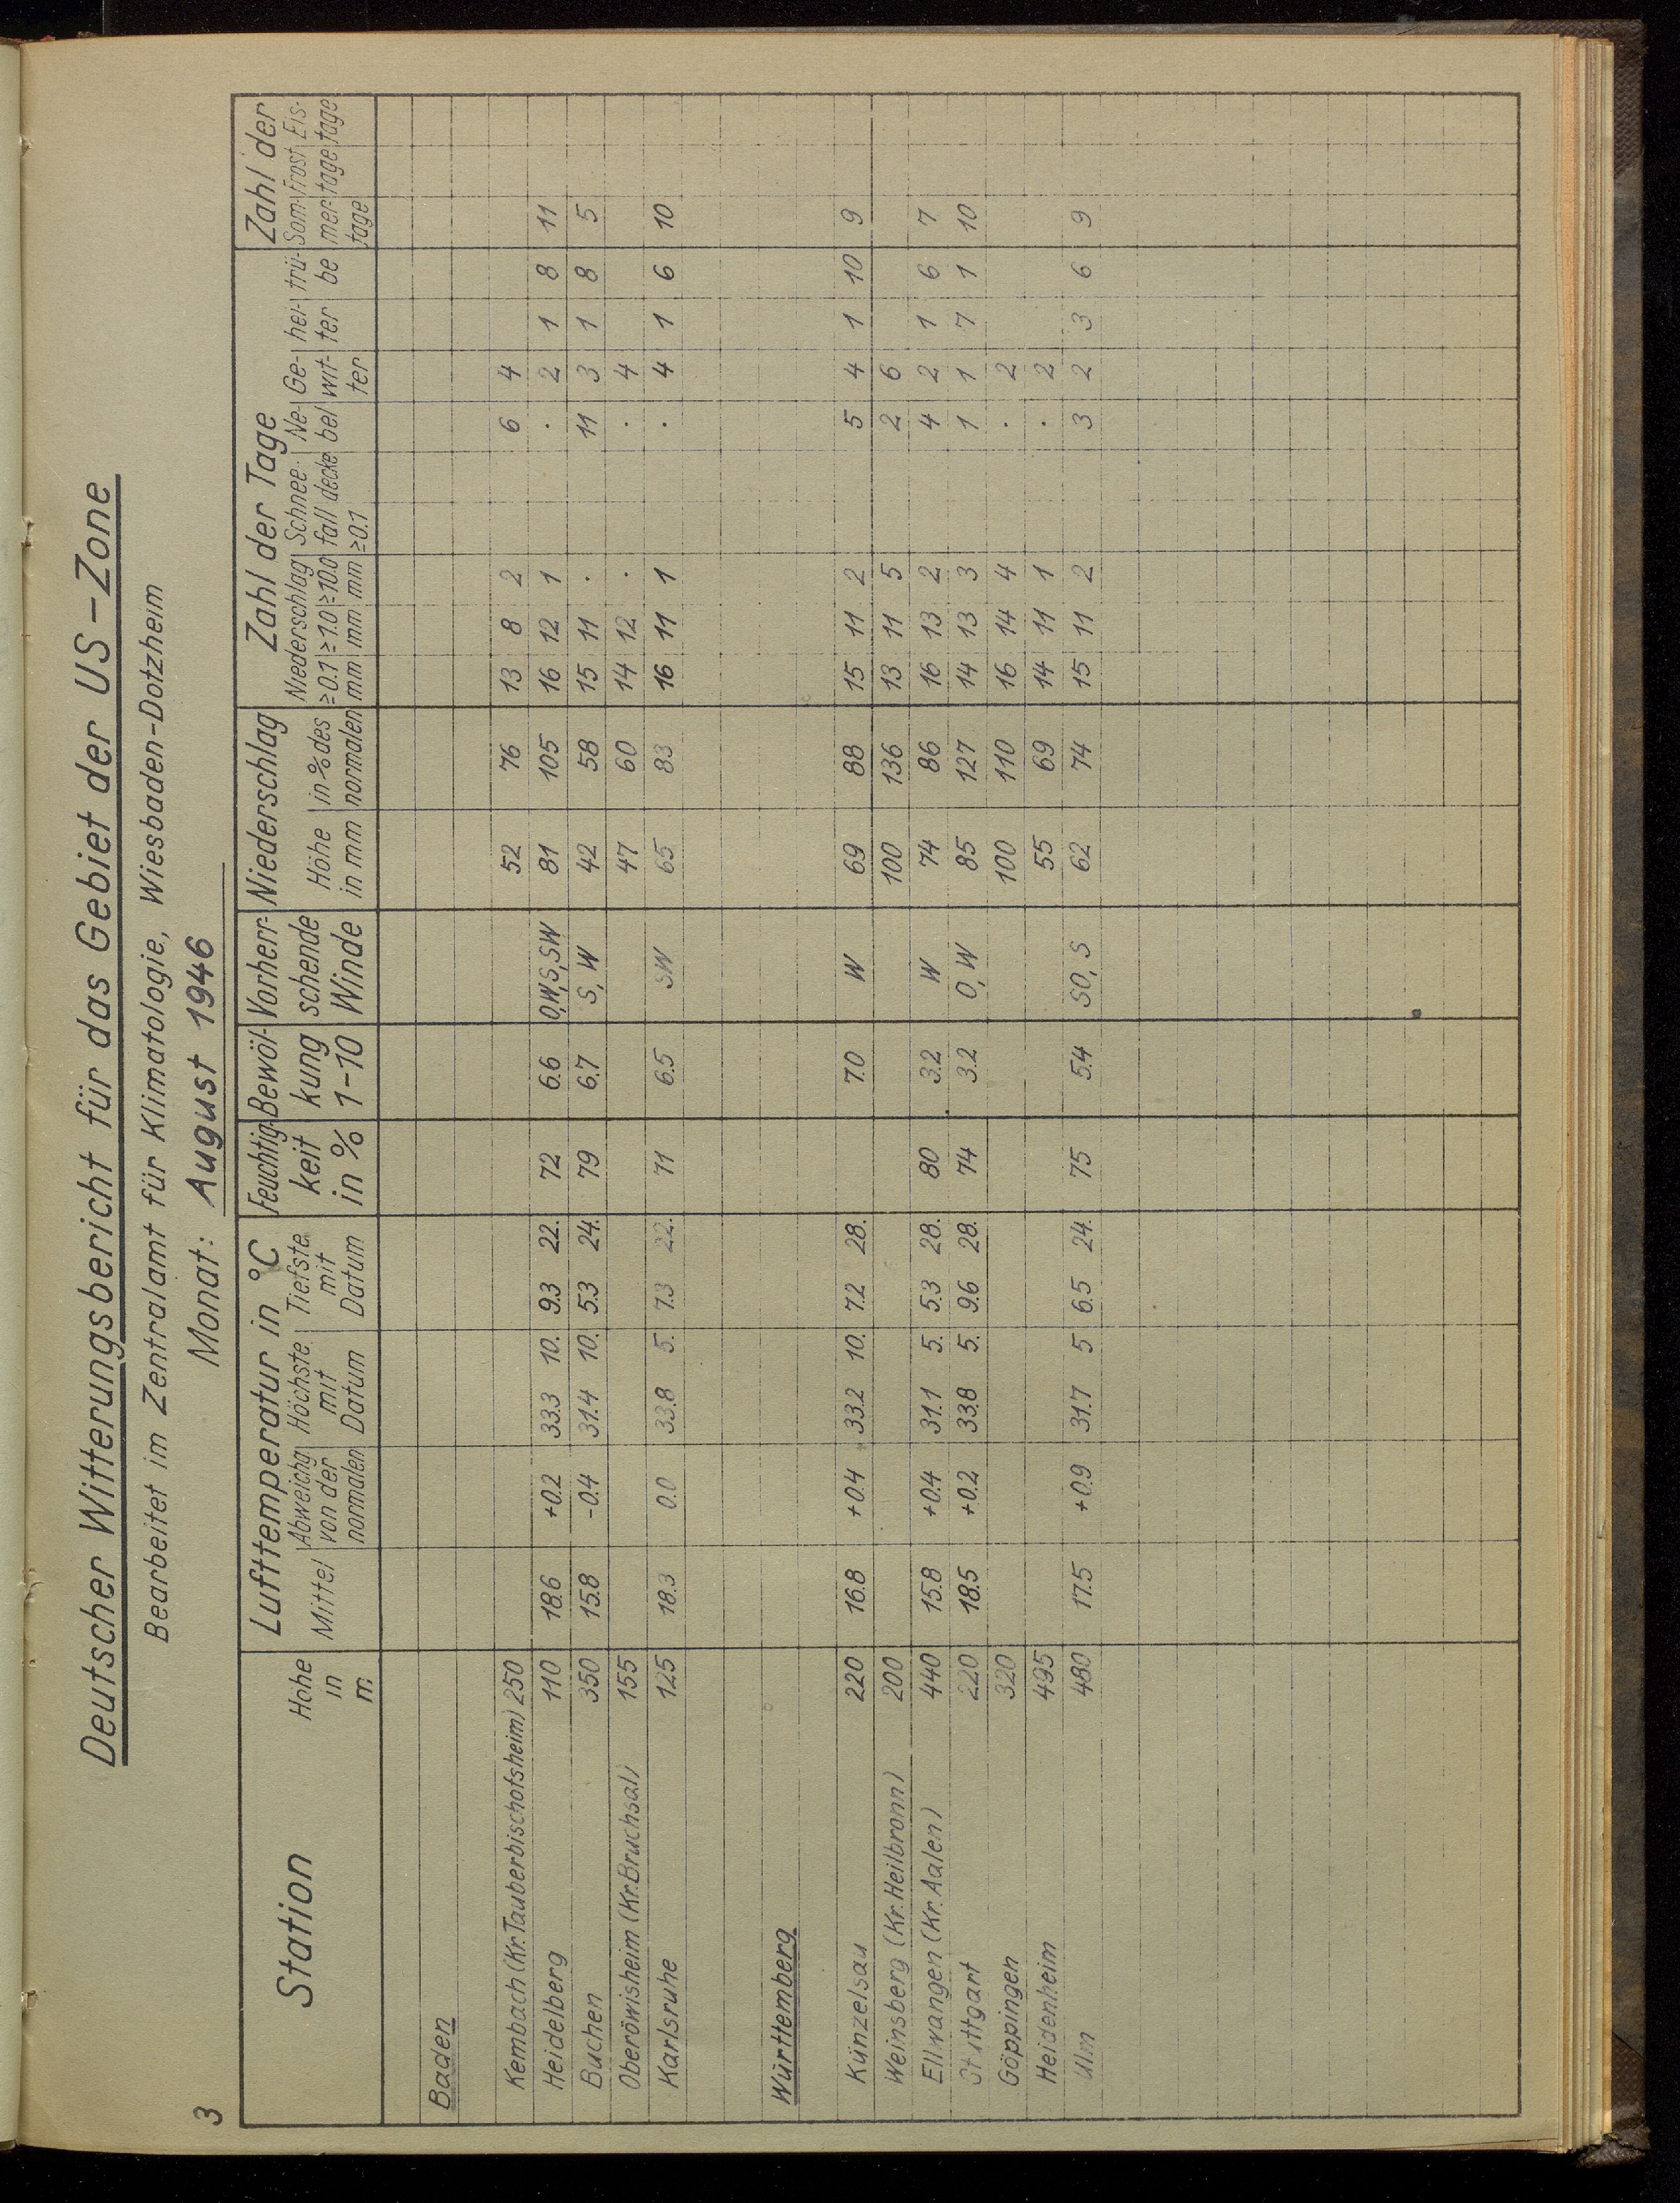 3
Deutscher Witterungsbericht für das Gebiet der US-Zone
Bearbeitet im Zentralamt für Klimatologie, Wiesbaden-Dotzheim
Monat: August 1946
Station Höhe in m Lufttemperatur in °C Feuchtig- keit in % Bewöl- kung 1-10 Vorherr- schende Winde Niederschlag Zahl der Tage Zahl der
Mittel Abweichg von der normalen Höchste mit Datum Tiefste mit Datum Höhe in mm in % des normalen Niederschlag ≥0.1 mm ≥1.0 mm ≥10.0 mm Schnee- fall decke ≥0.1 Ne- bel Ge- wit- ter hei- ter trü- be Som- mer- tage Frost tage Eis- tage
Baden
Kembach (Kr. Tauberbischofsheim) 250 52 76 13 8 2 6 4
Heidelberg 110 18.6 +0.2 33.3 10. 9.3 22. 72 6.6 O,W,S,SW 81 105 16 12 1 . 2 1 8 11
Buchen 350 15.8 -0.4 31.4 10. 5.3 24. 79 6.7 S, W 42 58 15 11 . 11 3 1 8 5
Oberöwisheim (Kr. Bruchsal) 155 47 60 14 12 . . 4
Karlsruhe 125 18.3 0.0 33.8 5. 7.3 22. 71 6.5 SW 65 83 16 11 1 . 4 1 6 10
Württemberg
Künzelsau 220 16.8 +0.4 33.2 10. 7.2 28. 7.0 W 69 88 15 11 2 5 4 1 10 9
Weinsberg (Kr. Heilbronn) 200 100 136 13 11 5 2 6
Ellwangen (Kr. Aalen) 440 15.8 +0.4 31.1 5. 5.3 28. 80 3.2 W 74 86 16 13 2 4 2 1 6 7
Stuttgart 220 18.5 +0.2 33.8 5. 9.6 28. 74 3.2 O, W 85 127 14 13 3 1 1 7 1 10
Göppingen 320 100 110 16 14 4 . 2
Heidenheim 495 55 69 14 11 1 . 2
Ulm 480 17.5 +0.9 31.7 5 6.5 24. 75 5.4 SO, S 62 74 15 11 2 3 2 3 6 9